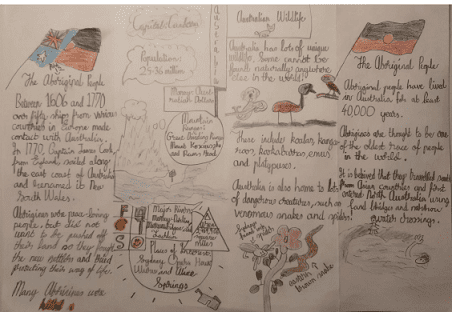 Capital: Canberra
Population:
25.36 million
Money: Aust
ralian Dollars
Mountain
Ranges:
Great Dividing Range
Mount Kosciuszko
Major Rivers:
Murray, Darling
Places of Interest:
Sydney Opera House
Uluru and Alice
Springs
The Aboriginal People
Between 1606 and 1770
over fifty ships from various
countries in Europe made
contact with Australia.
In 1770, Captain James Cook
from England, sailed along
the east coast of Australia
and renamed it New
South Wales.
Aborigines were peace-loving
people, but did not
want to be pushed off
their land so they fought
the new settlers and tried
protecting their way of life.
Many Aborigines were
Australian Wildlife
Australia has lots of unique
wildlife. Some cannot be
found naturally anywhere
else in the world!
These include koalas, kanga-
roos, kookaburras, emus
and platypuses.
Australia is also home to lots
of dangerous creatures, such as
venomous snakes and spiders.
eastern
brown snake
The Aboriginal People
Aboriginal people have lived
in Australia for at least
40,000 years.
Aborigines are thought to be one
of the oldest race of people
in the world.
It is believed that they travelled
from Asian countries and first
entered North Australia using
land bridges and
water crossings.